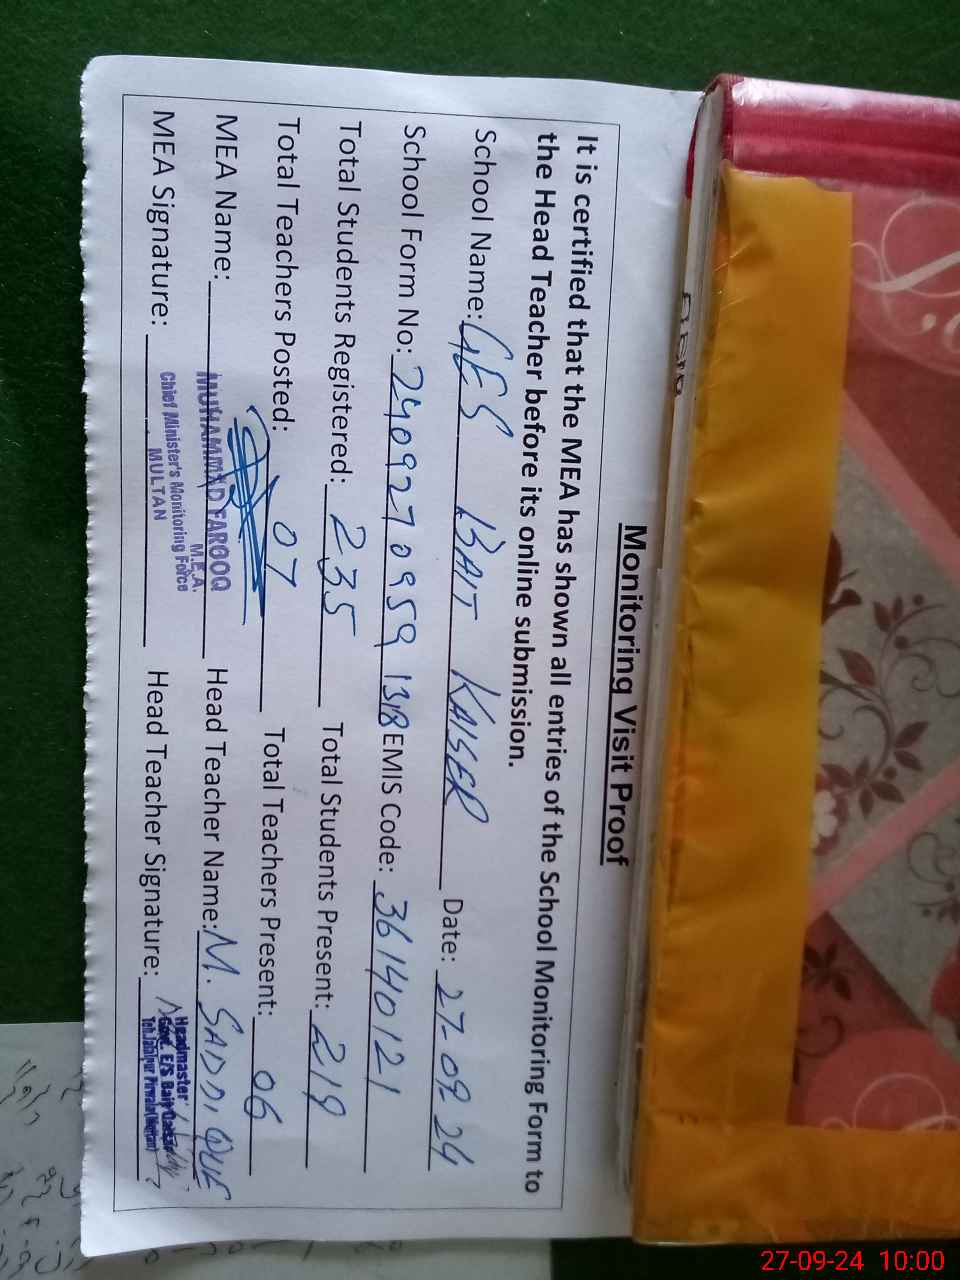 Monitoring Visit Proof
It is certified that the MEA has shown all entries of the School Monitoring Form to
the Head Teacher before its online submission.
School Name: GES BAIT KAISER Date: 27-09 24
School Form No: 2409270959 1318 EMIS Code: 36140121
Total Students Registered: 235 Total Students Present: 219
Total Teachers Posted: 07 Total Teachers Present: 06
MEA Name: MUHAMMAD FAROOQ Head Teacher Name: M. SADDIQUE
M.E.A.
Chief Minister's Monitoring Force
MULTAN
MEA Signature: Head Teacher Signature:
Headmaster
Govt. E/S Bait
Teh. Jalalpur Pirwala (Multan)
27-09-24 10:00